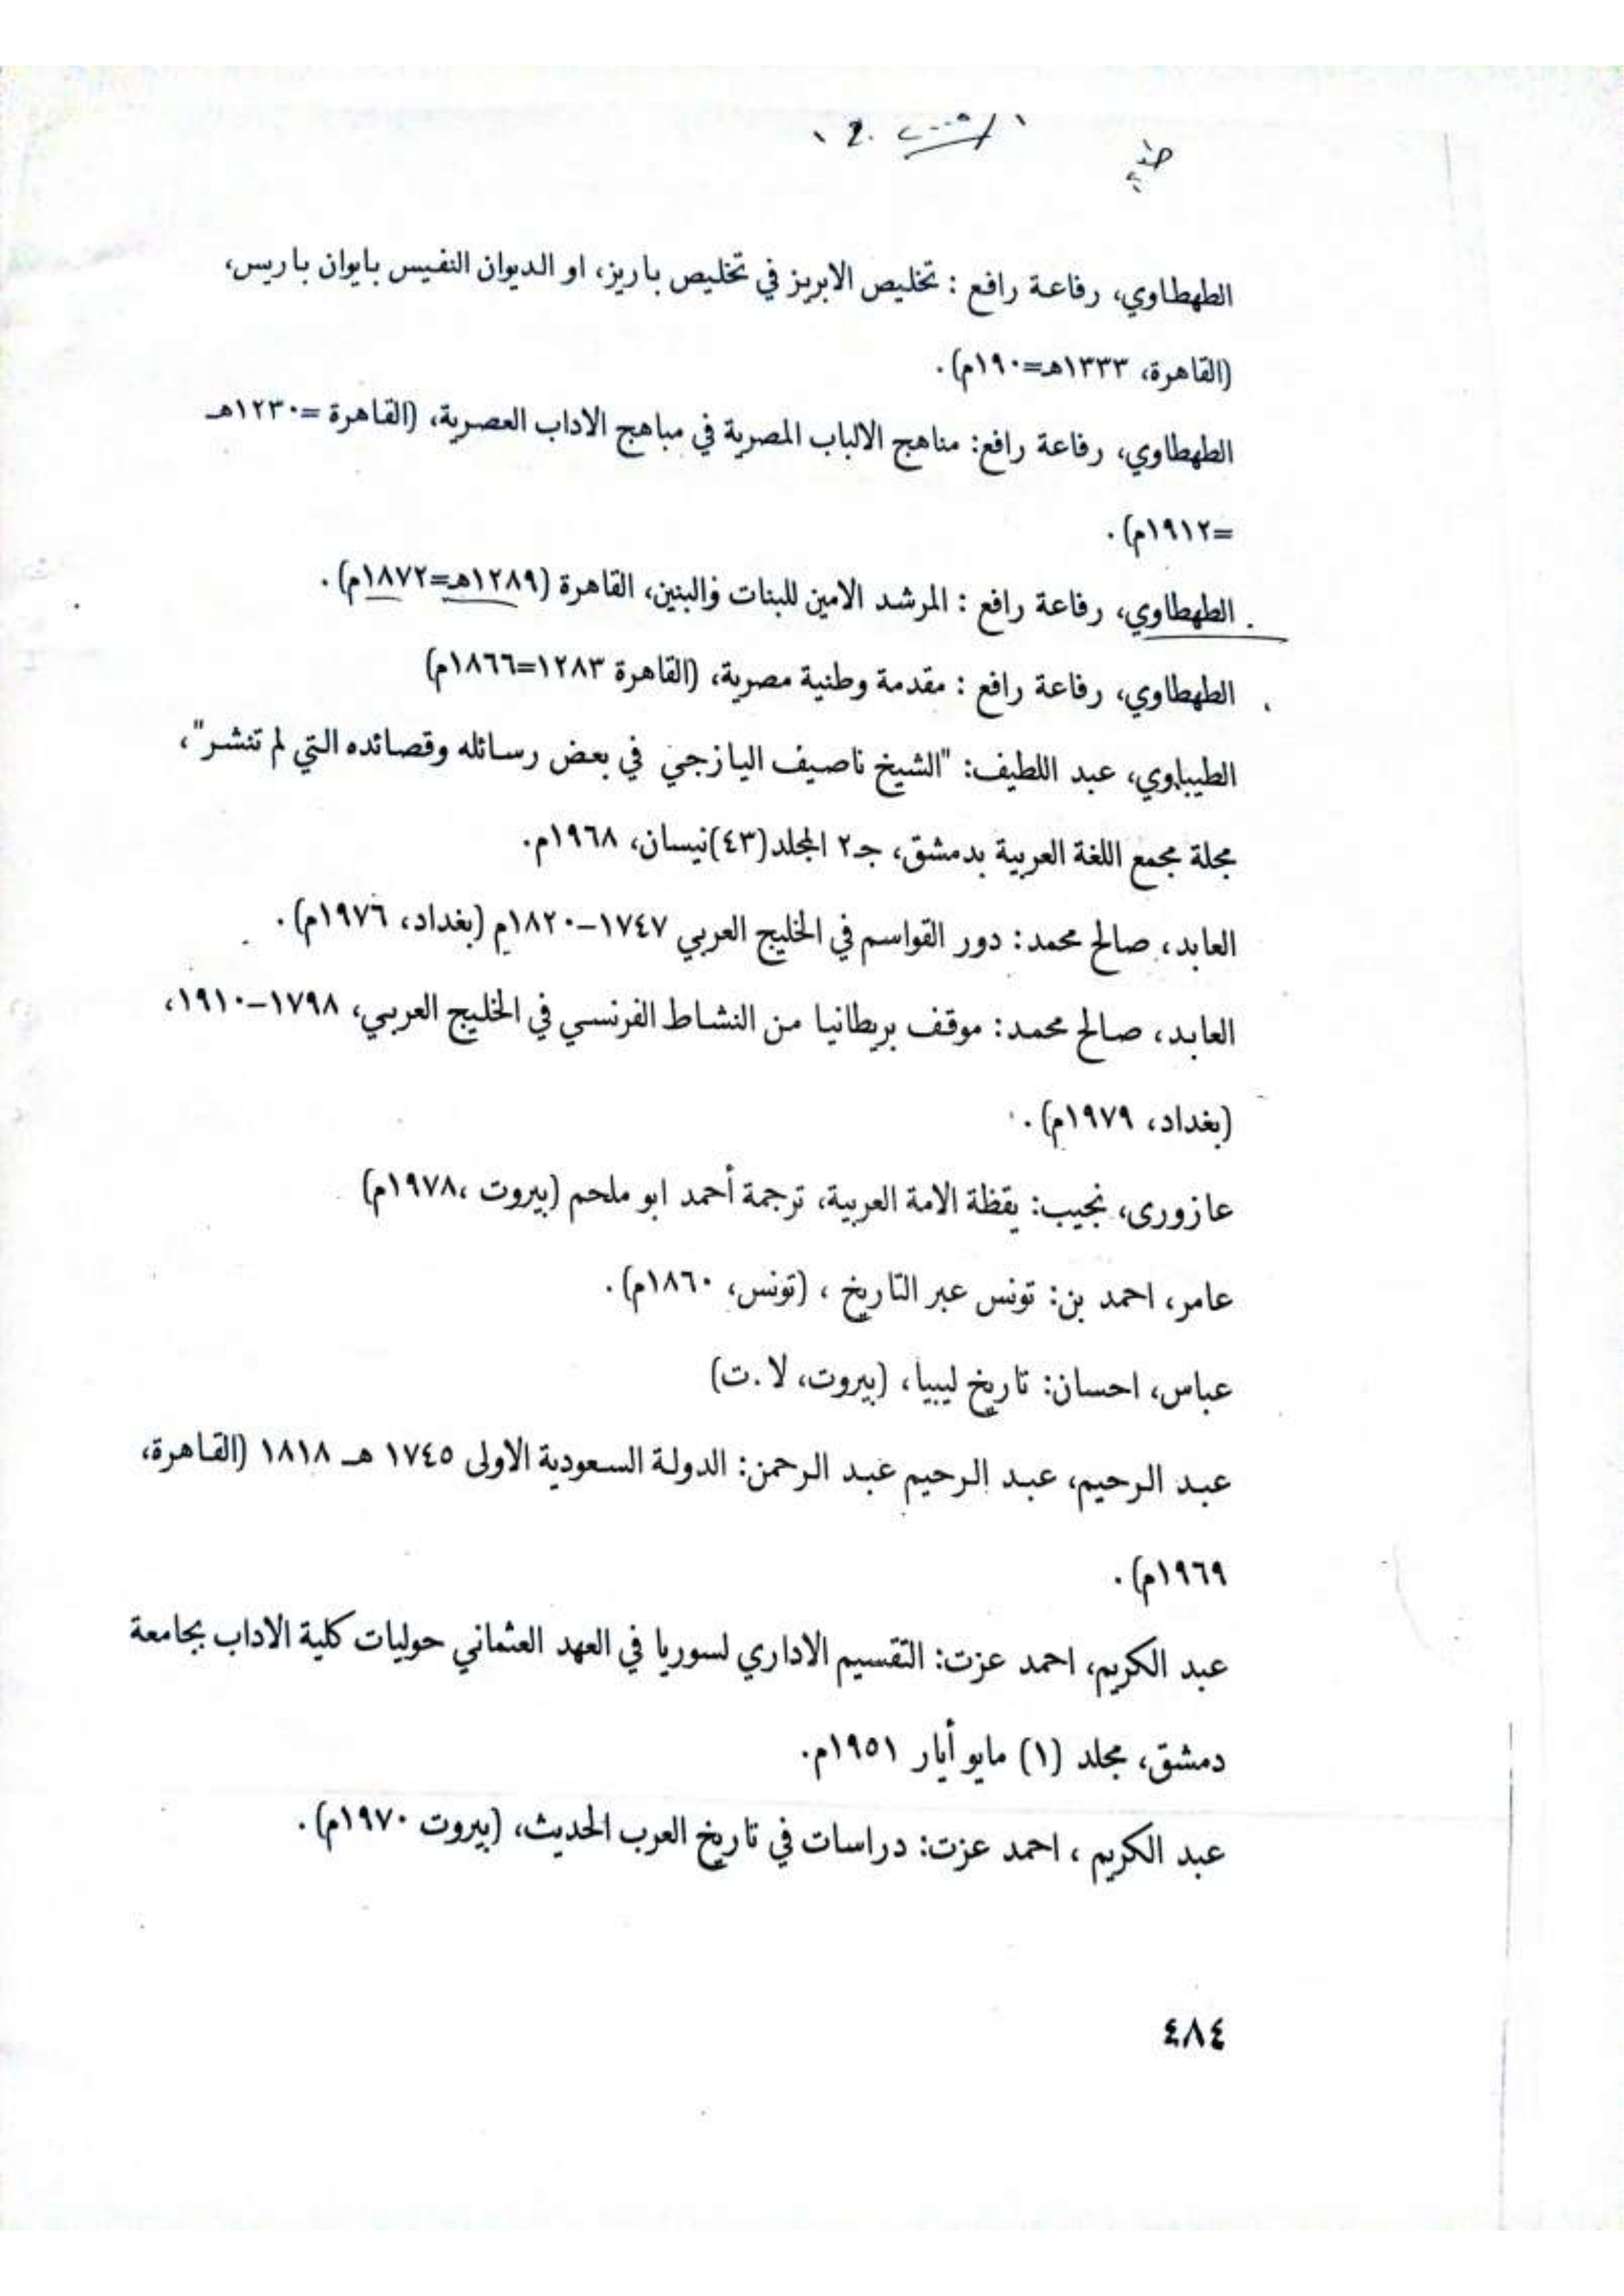 الطهطاوي، رفاعة رافع : تخليص الابريز في تخليص باريز، او الديوان النفيس بايوان باريس،
(القاهرة، ١٣٣٣هـ=١٩٠م).
الطهطاوي، رفاعة رافع: مناهج الالباب المصرية في مباهج الاداب العصرية، (القاهرة =١٢٣٠هـ
=١٩١٢م).
الطهطاوي، رفاعة رافع : المرشد الامين للبنات والبنين، القاهرة (١٢٨٩هـ=١٨٧٢م).
الطهطاوي، رفاعة رافع : مقدمة وطنية مصرية، (القاهرة ١٢٨٣=١٨٦٦م)
الطيباوي، عبد اللطيف: "الشيخ ناصيف اليازجي في بعض رسائله وقصائده التي لم تنشر"،
مجلة مجمع اللغة العربية بدمشق، جـ٢ المجلد(٤٣)نيسان، ١٩٦٨م.
العابد، صالح محمد: دور القواسم في الخليج العربي ١٧٤٧-١٨٢٠م (بغداد، ١٩٧٦م).
العابد، صالح محمد: موقف بريطانيا من النشاط الفرنسي في الخليج العربي، ١٧٩٨-١٩١٠،
(بغداد، ١٩٧٩م).
عازورى، نجيب: يقظة الامة العربية، ترجمة أحمد ابو ملحم (بيروت ،١٩٧٨م)
عامر، احمد بن: تونس عبر التاريخ ، (تونس، ١٨٦٠م).
عباس، احسان: تاريخ ليبيا، (بيروت، لا.ت)
عبد الرحيم، عبد الرحيم عبد الرحمن: الدولة السعودية الاولى ١٧٤٥ هـ ١٨١٨ (القاهرة،
١٩٦٩م).
عبد الكريم، احمد عزت: التقسيم الاداري لسوريا في العهد العثماني حوليات كلية الاداب بجامعة
دمشق، مجلد (١) مايو أيار ١٩٥١م.
عبد الكريم ، احمد عزت: دراسات في تاريخ العرب الحديث، (بيروت ١٩٧٠م).
٤٨٤